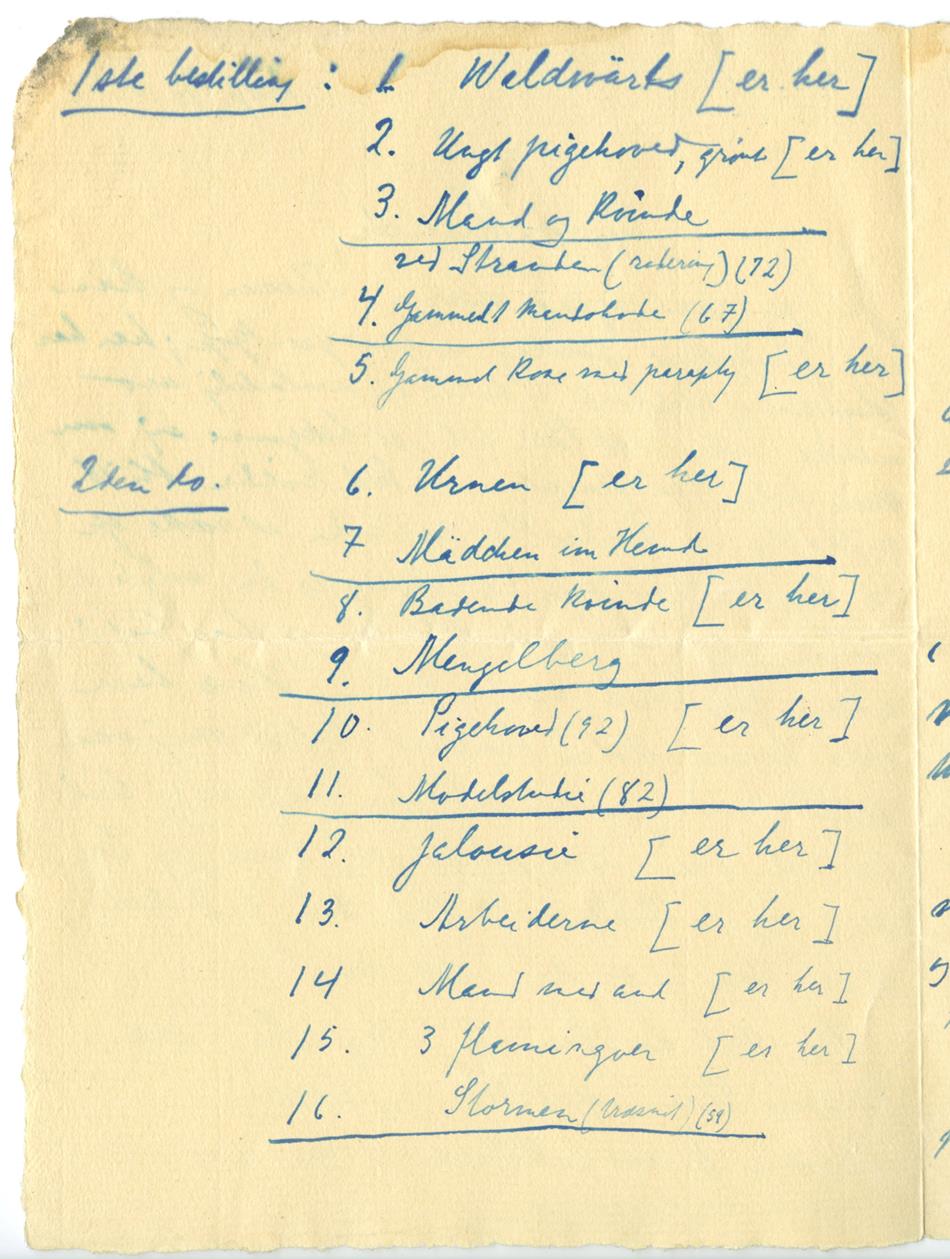 1ste bestilling : 1 Waldwärts [er her]
2. Ungt pigehoved, grönt [er her]
3. Mand og Kvinde
ved Stranden (radering) (72)
4. Gammelt Mandshode (67)
5. Gammel Kone med paraply [er her]
2den do. 6. Urnen [er her]
7 Mädchen im Hemd
8. Badende Kvinde [er her]
9. Mengelberg
10. Pigehoved (92) [er her]
11. Modelstudie (82)
12. Jalousie [er her]
13. Arbeiderne [er her]
14 Mand med and [er her]
15. 3 flamingoer [er her]
16. Stormen (træsnit) (59)